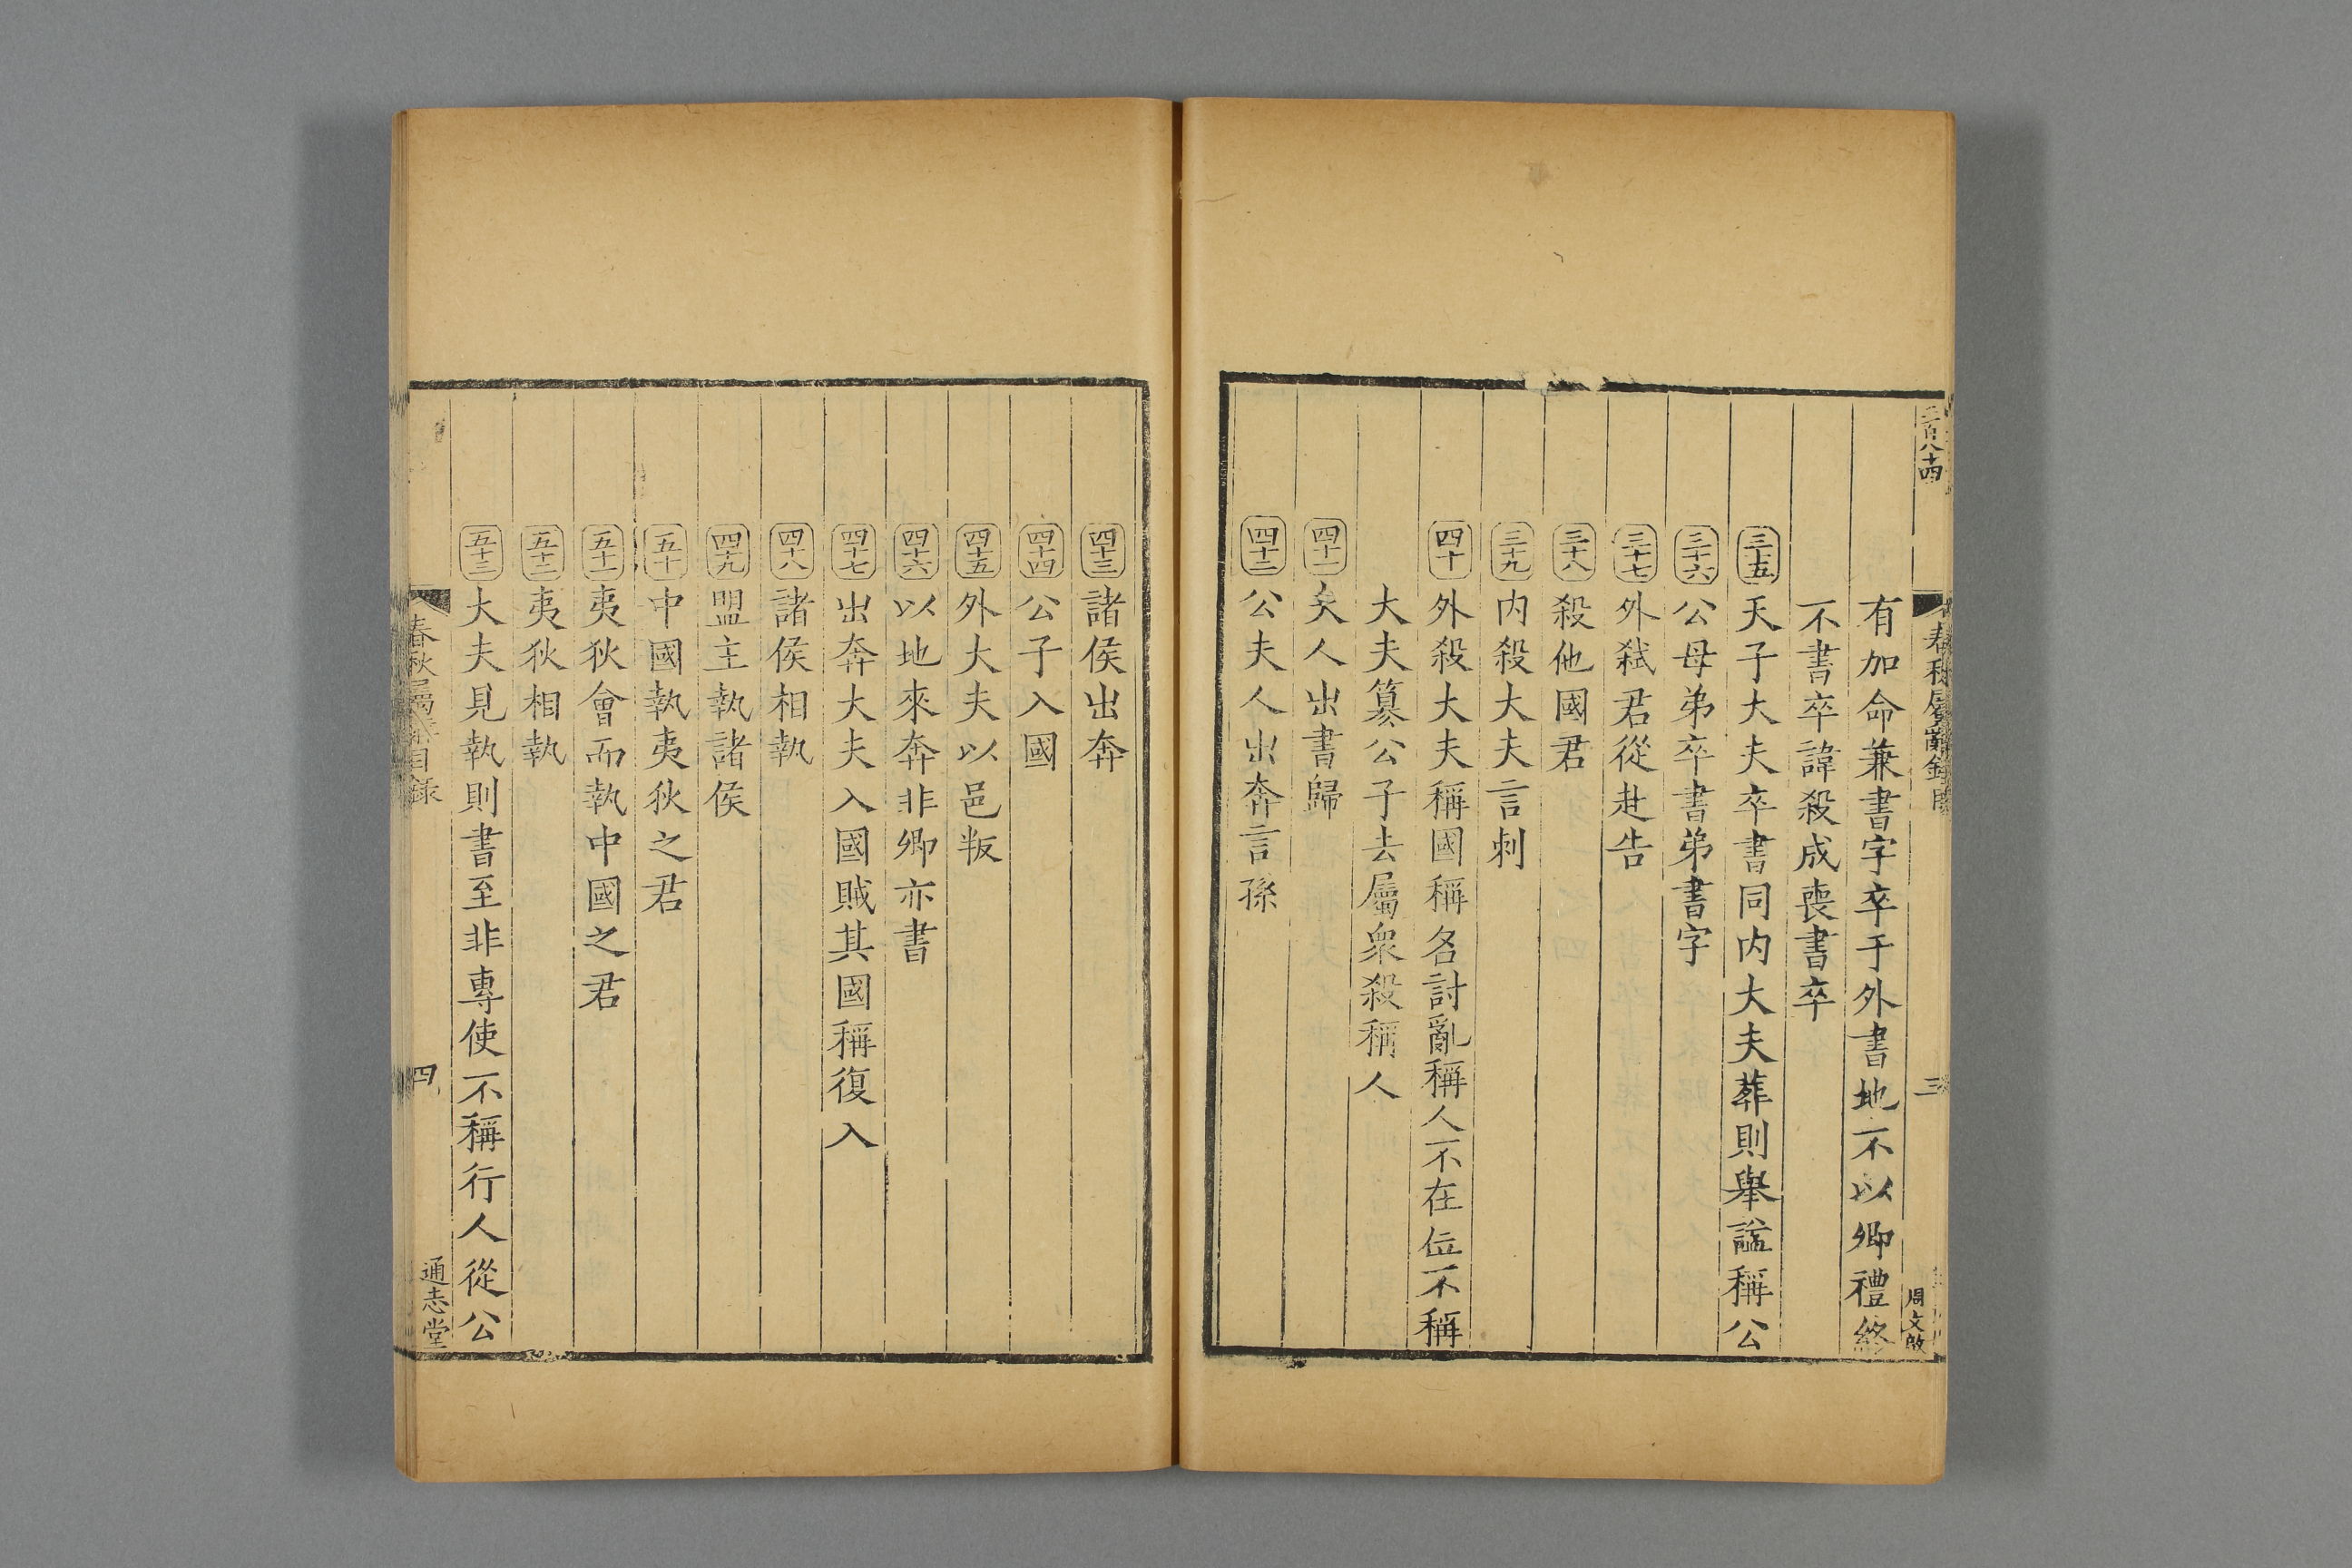 三百八十四
春秋屬辭目錄
三
周文啟
有加命兼書字卒于外書地不以卿禮終
不書卒諱殺成喪書卒
三十五 天子大夫卒書同内大夫葬則舉謚稱公
三十六 公母弟卒書弟書字
三十七 外弑君從赴告
三十八 殺他國君
三十九 内殺大夫言刺
四十 外殺大夫稱國稱名討亂稱人不在位不稱
大夫簒公子去屬衆殺稱人
四十一 夫人出書歸
四十二 公夫人出奔言孫
四十三 諸侯出奔
四十四 公子入國
四十五 外大夫以邑叛
四十六 以地來奔非卿亦書
四十七 出奔大夫入國賊其國稱復入
四十八 諸侯相執
四十九 盟主執諸侯
五十 中國執夷狄之君
五十一 夷狄會而執中國之君
五十二 夷狄相執
五十三 大夫見執則書至非專使不稱行人從公
春秋屬辭目録
四
通志堂